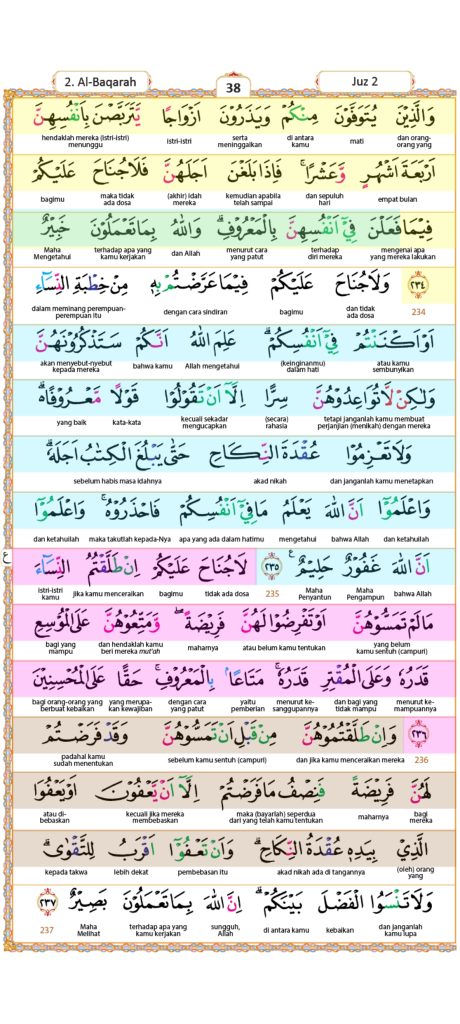 2. Al-Baqarah 38 Juz 2
وَالَّذِيْنَ يُتَوَفَّوْنَ مِنْكُمْ وَيَذَرُوْنَ اَزْوَاجًا يَّتَرَبَّصْنَ بِاَنْفُسِهِنَّ
dan orang-orang yang mati di antara kamu serta meninggalkan istri-istri hendaklah mereka (istri-istri) menunggu
اَرْبَعَةَ اَشْهُرٍ وَّعَشْرًاۚ فَاِذَا بَلَغْنَ اَجَلَهُنَّ فَلَا جُنَاحَ عَلَيْكُمْ
empat bulan dan sepuluh hari kemudian apabila telah sampai (akhir) idah mereka maka tidak ada dosa bagimu
فِيْمَا فَعَلْنَ فِيْٓ اَنْفُسِهِنَّ بِالْمَعْرُوْفِۗ وَاللّٰهُ بِمَا تَعْمَلُوْنَ خَبِيْرٌ
mengenai apa yang mereka lakukan terhadap diri mereka menurut cara yang patut dan Allah terhadap apa yang kamu kerjakan Maha Mengetahui
٢٣٤ وَلَا جُنَاحَ عَلَيْكُمْ فِيْمَا عَرَّضْتُمْ بِهٖ مِنْ خِطْبَةِ النِّسَاۤءِ
234 dan tidak ada dosa bagimu dengan cara sindiran dalam meminang perempuan-perempuan itu
اَوْ اَكْنَنْتُمْ فِيْٓ اَنْفُسِكُمْۗ عَلِمَ اللّٰهُ اَنَّكُمْ سَتَذْكُرُوْنَهُنَّ
atau kamu sembunyikan (keinginanmu) dalam hati Allah mengetahui bahwa kamu akan menyebut-nyebut kepada mereka
وَلٰكِنْ لَّا تُوَاعِدُوْهُنَّ سِرًّا اِلَّآ اَنْ تَقُوْلُوْا قَوْلًا مَّعْرُوْفًاۗ
tetapi janganlah kamu membuat perjanjian (menikah) dengan mereka (secara) rahasia kecuali sekadar mengucapkan kata-kata yang baik
وَلَا تَعْزِمُوْا عُقْدَةَ النِّكَاحِ حَتّٰى يَبْلُغَ الْكِتٰبُ اَجَلَهٗۗ
dan janganlah kamu menetapkan akad nikah sebelum habis masa idahnya
وَاعْلَمُوْٓا اَنَّ اللّٰهَ يَعْلَمُ مَا فِيْٓ اَنْفُسِكُمْ فَاحْذَرُوْهُۚ وَاعْلَمُوْٓا
dan ketahuilah bahwa Allah mengetahui apa yang ada dalam hatimu maka takutlah kepada-Nya dan ketahuilah
ع
اَنَّ اللّٰهَ غَفُوْرٌ حَلِيْمٌ ٢٣٥ لَا جُنَاحَ عَلَيْكُمْ اِنْ طَلَّقْتُمُ النِّسَاۤءَ
bahwa Allah Maha Pengampun Maha Penyantun 235 tidak ada dosa bagimu jika kamu menceraikan istri-istri kamu
مَا لَمْ تَمَسُّوْهُنَّ اَوْ تَفْرِضُوْا لَهُنَّ فَرِيْضَةًۖ وَّمَتِّعُوْهُنَّ عَلَى الْمُوْسِعِ
yang belum kamu sentuh (campuri) atau belum kamu tentukan maharnya dan hendaklah kamu beri mereka mut'ah bagi yang mampu
قَدَرُهٗ وَعَلَى الْمُقْتِرِ قَدَرُهٗۚ مَتَاعًا ۢبِالْمَعْرُوْفِۚ حَقًّا عَلَى الْمُحْسِنِيْنَ
menurut ke-mampuannya dan bagi yang tidak mampu menurut ke-sanggupannya yaitu pemberian dengan cara yang patut yang merupa-kan kewajiban bagi orang-orang yang berbuat kebaikan
٢٣٦ وَاِنْ طَلَّقْتُمُوْهُنَّ مِنْ قَبْلِ اَنْ تَمَسُّوْهُنَّ وَقَدْ فَرَضْتُمْ
236 dan jika kamu menceraikan mereka sebelum kamu sentuh (campuri) padahal kamu sudah menentukan
لَهُنَّ فَرِيْضَةً فَنِصْفُ مَا فَرَضْتُمْ اِلَّآ اَنْ يَّعْفُوْنَ اَوْ يَعْفُوَا
bagi mereka maharnya maka (bayarlah) seperdua dari yang telah kamu tentukan kecuali jika mereka membebaskan atau di-bebaskan
الَّذِيْ بِيَدِهٖ عُقْدَةُ النِّكَاحِۗ وَاَنْ تَعْفُوْٓا اَقْرَبُ لِلتَّقْوٰىۗ
(oleh) orang yang akad nikah ada di tangannya pembebasan itu lebih dekat kepada takwa
وَلَا تَنْسَوُا الْفَضْلَ بَيْنَكُمْۗ اِنَّ اللّٰهَ بِمَا تَعْمَلُوْنَ بَصِيْرٌ ٢٣٧
dan janganlah kamu lupa kebaikan di antara kamu sungguh, Allah terhadap apa yang kamu kerjakan Maha Melihat 237